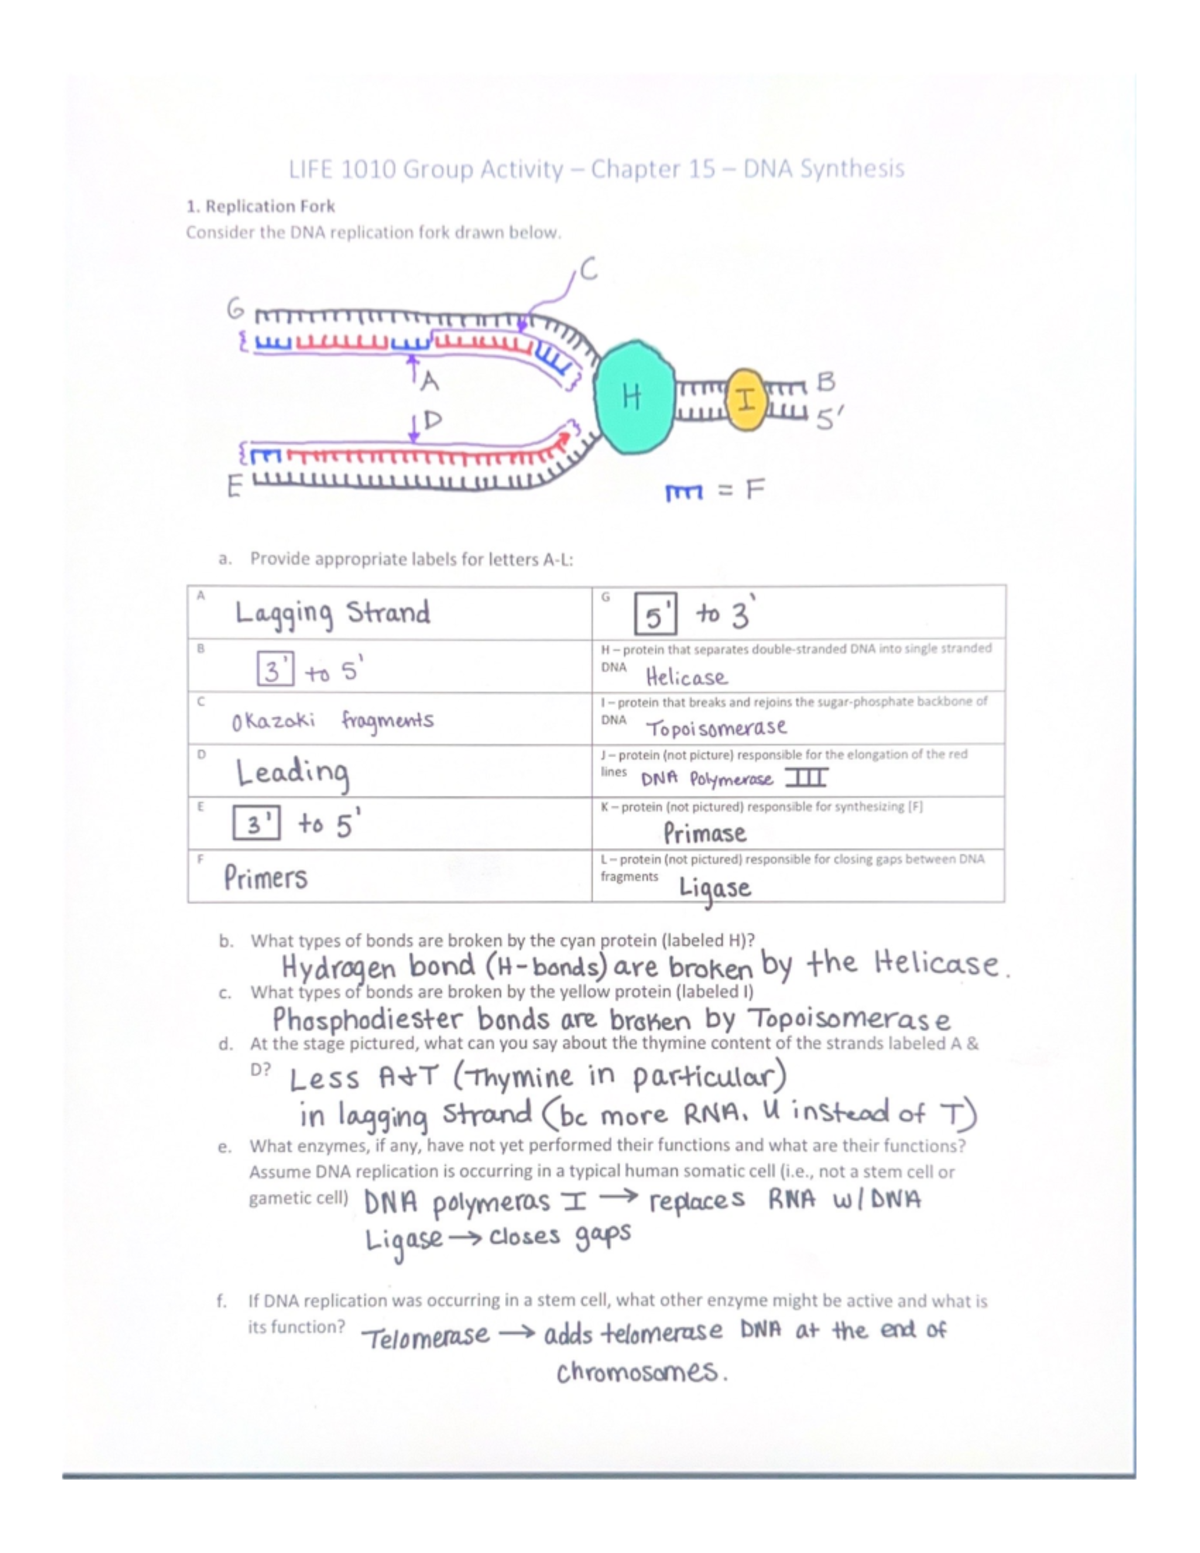 LIFE 1010 Group Activity – Chapter 15 – DNA Synthesis
1. Replication Fork
Consider the DNA replication fork drawn below.
C
G
A
H
I
B
5'
D
E
= F
a. Provide appropriate labels for letters A-L:
A Lagging Strand
G 5' to 3'
B 3' to 5'
H – protein that separates double-stranded DNA into single stranded
DNA Helicase
C Okazaki fragments
I – protein that breaks and rejoins the sugar-phosphate backbone of
DNA Topoisomerase
D Leading
J – protein (not picture) responsible for the elongation of the red
lines DNA Polymerase III
E 3' to 5'
K – protein (not pictured) responsible for synthesizing [F]
Primase
F Primers
L – protein (not pictured) responsible for closing gaps between DNA
fragments Ligase
b. What types of bonds are broken by the cyan protein (labeled H)?
Hydrogen bond (H-bonds) are broken by the Helicase.
c. What types of bonds are broken by the yellow protein (labeled I)
Phosphodiester bonds are broken by Topoisomerase
d. At the stage pictured, what can you say about the thymine content of the strands labeled A &
D? Less A+T (Thymine in particular)
in lagging strand (bc more RNA. U instead of T)
e. What enzymes, if any, have not yet performed their functions and what are their functions?
Assume DNA replication is occurring in a typical human somatic cell (i.e., not a stem cell or
gametic cell) DNA polymeras I → replaces RNA w/DNA
Ligase → closes gaps
f. If DNA replication was occurring in a stem cell, what other enzyme might be active and what is
its function? Telomerase → adds telomerase DNA at the end of
chromosomes.